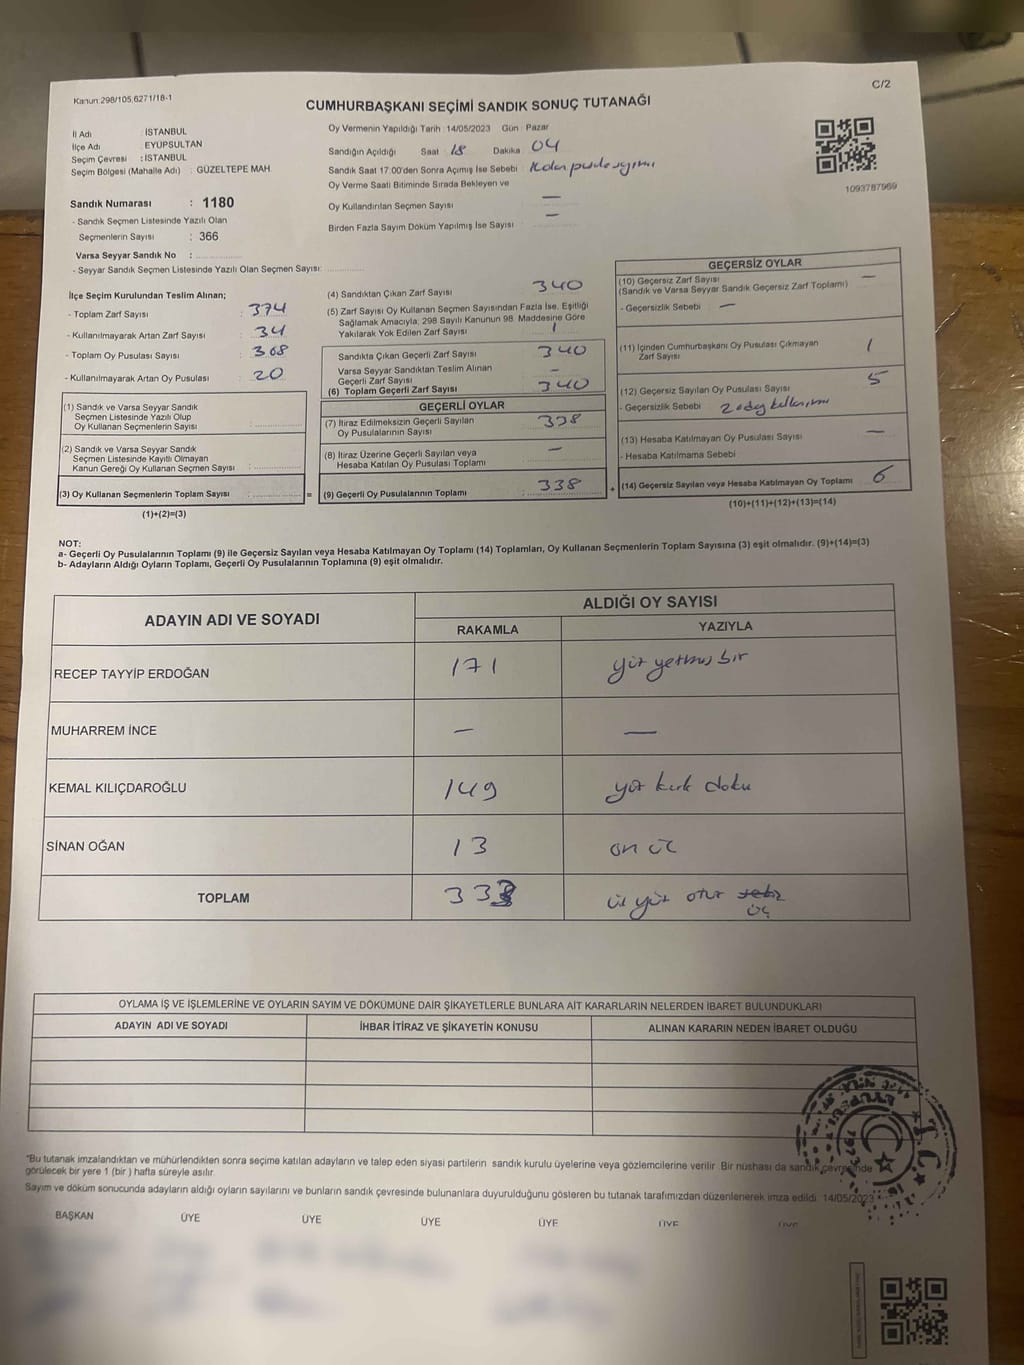 Kanun:298/105,6271/18-1
C/2
CUMHURBAŞKANI SEÇİMİ SANDIK SONUÇ TUTANAĞI
İl Adı : İSTANBUL
İlçe Adı : EYÜPSULTAN
Seçim Çevresi : İSTANBUL
Seçim Bölgesi (Mahalle Adı) : GÜZELTEPE MAH
Sandık Numarası : 1180
- Sandık Seçmen Listesinde Yazılı Olan
Seçmenlerin Sayısı : 366
Varsa Seyyar Sandık No :
- Seyyar Sandık Seçmen Listesinde Yazılı Olan Seçmen Sayısı:
Oy Vermenin Yapıldığı Tarih : 14/05/2023 Gün : Pazar
Sandığın Açıldığı Saat 18 Dakika 04
Sandık Saat 17:00'den Sonra Açımış İse Sebebi :
Oy Verme Saati Bitiminde Sırada Bekleyen ve
Oy Kullandırılan Seçmen Sayısı —
Birden Fazla Sayım Döküm Yapılmış İse Sayısı —
1093787969
İlçe Seçim Kurulundan Teslim Alınan;
- Toplam Zarf Sayısı : 374
- Kullanılmayarak Artan Zarf Sayısı : 34
- Toplam Oy Pusulası Sayısı : 368
- Kullanılmayarak Artan Oy Pusulası : 20
(1) Sandık ve Varsa Seyyar Sandık
Seçmen Listesinde Yazılı Olup
Oy Kullanan Seçmenlerin Sayısı :
(2) Sandık ve Varsa Seyyar Sandık
Seçmen Listesinde Kayıtlı Olmayan
Kanun Gereği Oy Kullanan Seçmen Sayısı :
(3) Oy Kullanan Seçmenlerin Toplam Sayısı : =
(1)+(2)=(3)
(4) Sandıktan Çıkan Zarf Sayısı 340
(5) Zarf Sayısı Oy Kullanan Seçmen Sayısından Fazla İse, Eşitliği
Sağlamak Amacıyla; 298 Sayılı Kanunun 98. Maddesine Göre
Yakılarak Yok Edilen Zarf Sayısı 1
Sandıkta Çıkan Geçerli Zarf Sayısı 340
Varsa Seyyar Sandıktan Teslim Alınan
Geçerli Zarf Sayısı —
(6) Toplam Geçerli Zarf Sayısı 340
GEÇERLİ OYLAR
(7) İtiraz Edilmeksizin Geçerli Sayılan
Oy Pusulalarının Sayısı : 338
(8) İtiraz Üzerine Geçerli Sayılan veya
Hesaba Katılan Oy Pusulası Toplamı : —
(9) Geçerli Oy Pusulalarının Toplamı : 338 +
GEÇERSİZ OYLAR
(10) Geçersiz Zarf Sayısı —
(Sandık ve Varsa Seyyar Sandık Geçersiz Zarf Toplamı)
- Geçersizlik Sebebi : —
(11) İçinden Cumhurbaşkanı Oy Pusulası Çıkmayan
Zarf Sayısı 1
(12) Geçersiz Sayılan Oy Pusulası Sayısı 5
- Geçersizlik Sebebi 2 adey
(13) Hesaba Katılmayan Oy Pusulası Sayısı —
- Hesaba Katılmama Sebebi
(14) Geçersiz Sayılan veya Hesaba Katılmayan Oy Toplamı 6
(10)+(11)+(12)+(13)=(14)
NOT:
a- Geçerli Oy Pusulalarının Toplamı (9) ile Geçersiz Sayılan veya Hesaba Katılmayan Oy Toplamı (14) Toplamları, Oy Kullanan Seçmenlerin Toplam Sayısına (3) eşit olmalıdır. (9)+(14)=(3)
b- Adayların Aldığı Oyların Toplamı, Geçerli Oy Pusulalarının Toplamına (9) eşit olmalıdır.
ADAYIN ADI VE SOYADI
ALDIĞI OY SAYISI
RAKAMLA YAZIYLA
RECEP TAYYİP ERDOĞAN 171 yüz yetmiş bir
MUHARREM İNCE — —
KEMAL KILIÇDAROĞLU 149 yüz kırk doku
SİNAN OĞAN 13 on üç
TOPLAM 333 üç yüz otuz sekiz
üç
OYLAMA İŞ VE İŞLEMLERİNE VE OYLARIN SAYIM VE DÖKÜMÜNE DAİR ŞİKAYETLERLE BUNLARA AİT KARARLARIN NELERDEN İBARET BULUNDUKLARI
ADAYIN ADI VE SOYADI
İHBAR İTİRAZ VE ŞİKAYETİN KONUSU
ALINAN KARARIN NEDEN İBARET OLDUĞU
*Bu tutanak imzalandıktan ve mühürlendikten sonra seçime katılan adayların ve talep eden siyasi partilerin sandık kurulu üyelerine veya gözlemcilerine verilir. Bir nüshası da sandık çevresinde
görülecek bir yere 1 (bir) hafta süreyle asılır.
Sayım ve döküm sonucunda adayların aldığı oyların sayılarını ve bunların sandık çevresinde bulunanlara duyurulduğunu gösteren bu tutanak tarafımızdan düzenlenerek imza edildi. 14/05/2023
BAŞKAN ÜYE ÜYE ÜYE ÜYE ÜYE ÜYE
T.C.